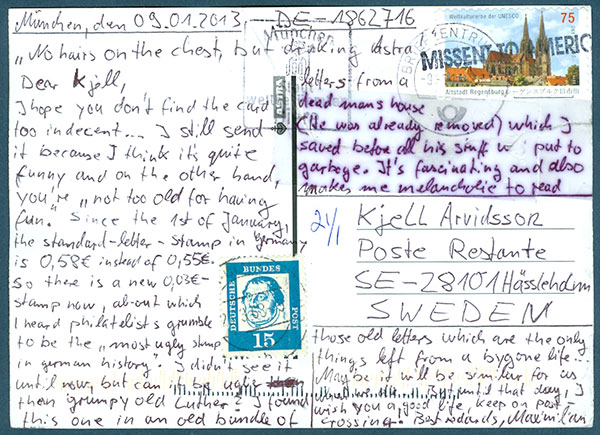 München, den 09.01.2013, DE-1862716
"No hairs on the chest, but drinking Astra"
Dear Kjell,
I hope you don't find the card
too indecent... I still send
it because I think it's quite
funny and on the other hand,
you're "not too old for having
fun." Since the 1st of January,
the standard-letter-stamp in Germany
is 0,58€ instead of 0,55€.
So there is a new 0,03€-
stamp now, about which
I heard philatelists grumble
to be the "most ugly stamp
in german history". I didn't see it
until now but can it be uglier
then grumpy old Luther? I found
this one in an old bundle of
letters from a
dead mans house
(He was already removed) which I
saved before all his stuff was put to
garbage. It's fascinating and also
makes me melancholic to read
those old letters which are the only
things left from a bygone life...
Maybe it will be similar for us
But until that day, I
wish you a good life. Keep on post-
crossing! Best wards, Maximilian
21/1
Kjell Arvidsson
Poste Restante
SE-28101 Hässleholm
SWEDEN
Weltkulturerbe der UNESCO
75
Altstadt Regensburg
MISSENT TO AMERIC
BRIEFZENTRUM
München
ASTRA
DEUTSCHE BUNDESPOST
15